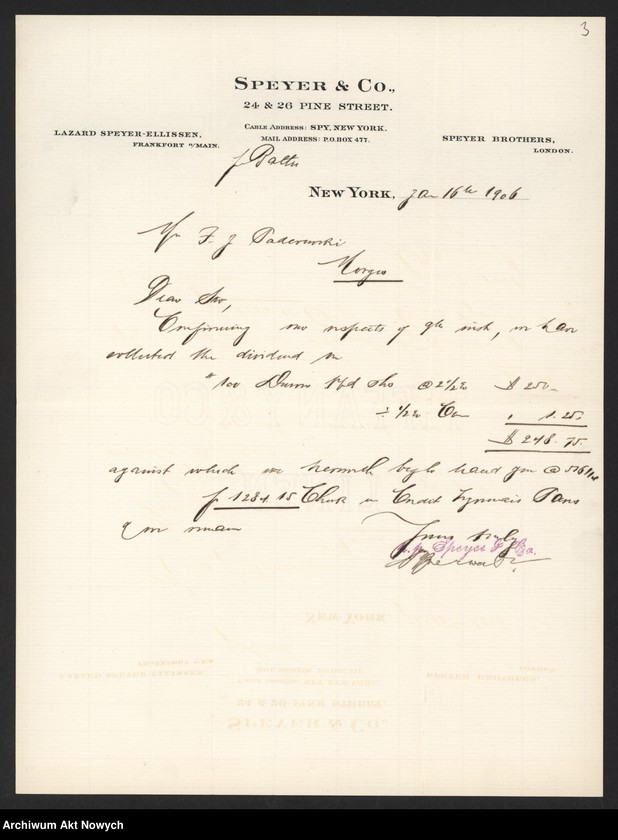 3
SPEYER & Co.,
24 & 26 PINE STREET.
CABLE ADDRESS: SPY, NEW YORK.
MAIL ADDRESS: P.O. BOX 477.
LAZARD SPEYER-ELLISSEN,
FRANKFORT o/MAIN.
SPEYER BROTHERS,
LONDON.
NEW YORK, Jan 16th 1906
Mr F. J Paderewski
Morges
Dear Sir,
Confirming our respects of 9th inst, we have
collected the dividend on
100 Pfd Shs @ 2½% $ 250-
÷ ½% Com 1.25
$ 248.75
against which we herewith beg to hand you @
f 1284.15 Check on Credit Lyonnais Paris
& we remain
Yours truly
Speyer & Co.
Archiwum Akt Nowych